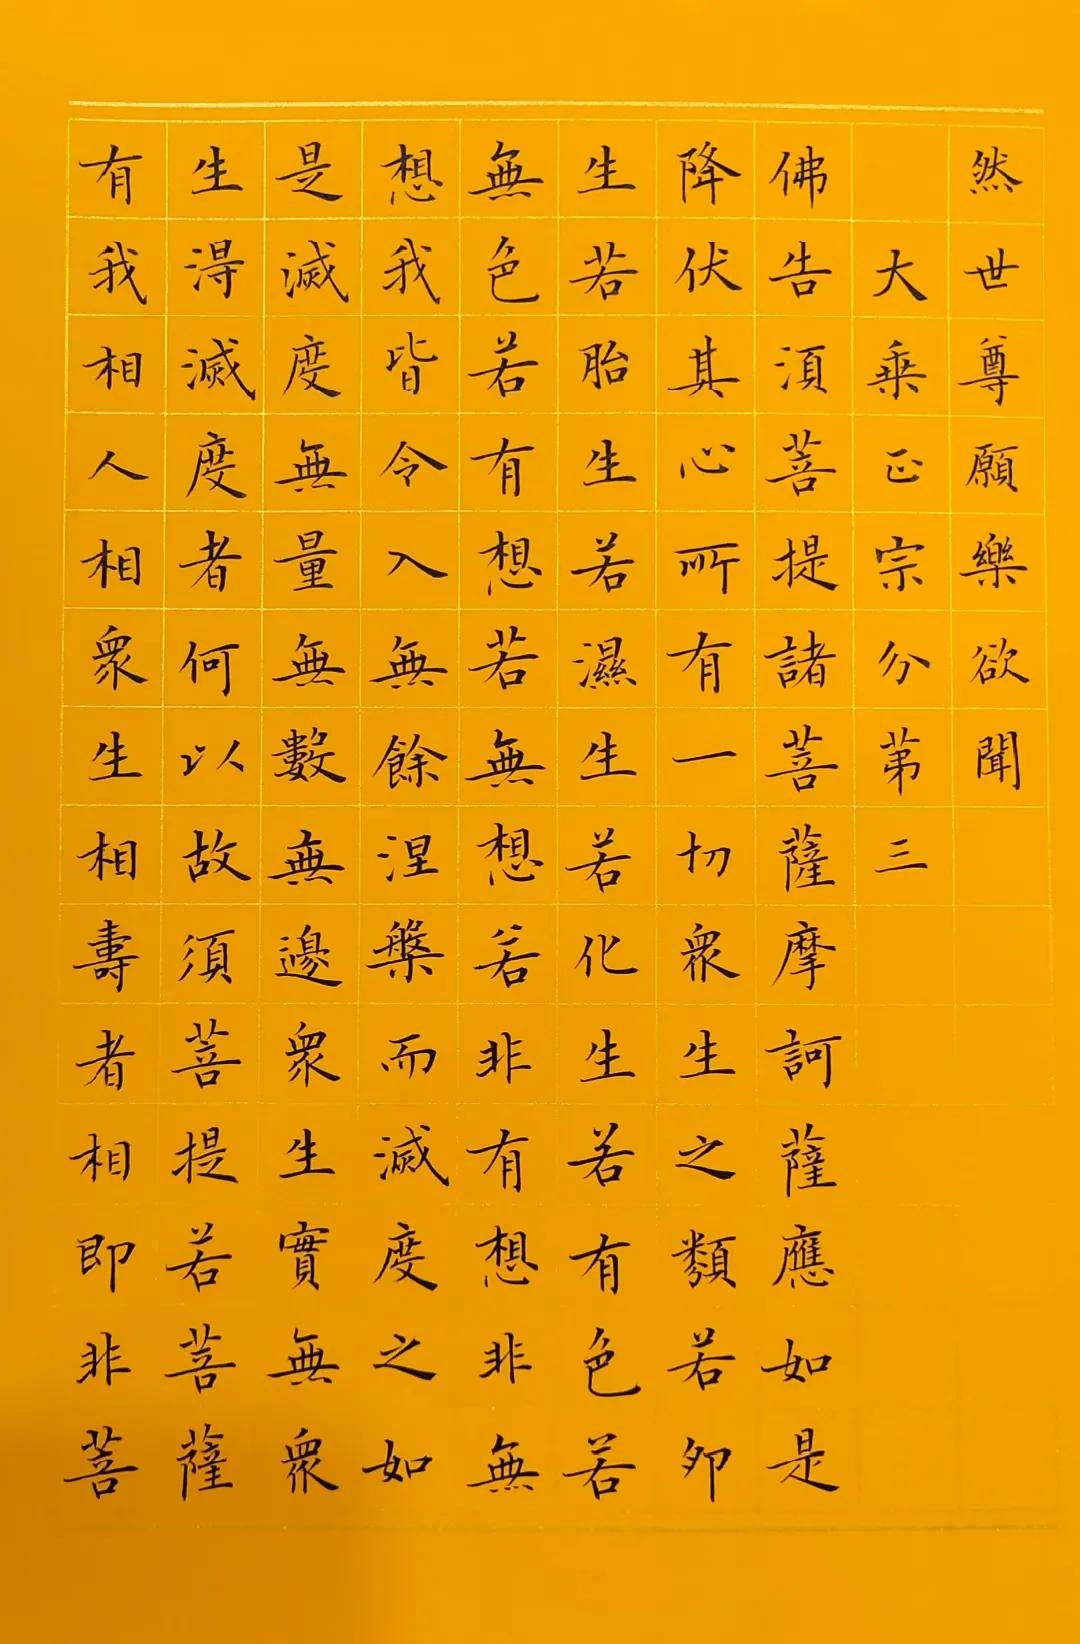 然世尊願樂欲聞
大乘正宗分第三
佛告須菩提諸菩薩摩訶薩應如是
降伏其心所有一切眾生之類若卵
生若胎生若濕生若化生若有色若
無色若有想若無想若非有想非無
想我皆令入無餘涅槃而滅度之如
是滅度無量無數無邊眾生實無眾
生得滅度者何以故須菩提若菩薩
有我相人相眾生相壽者相即非菩